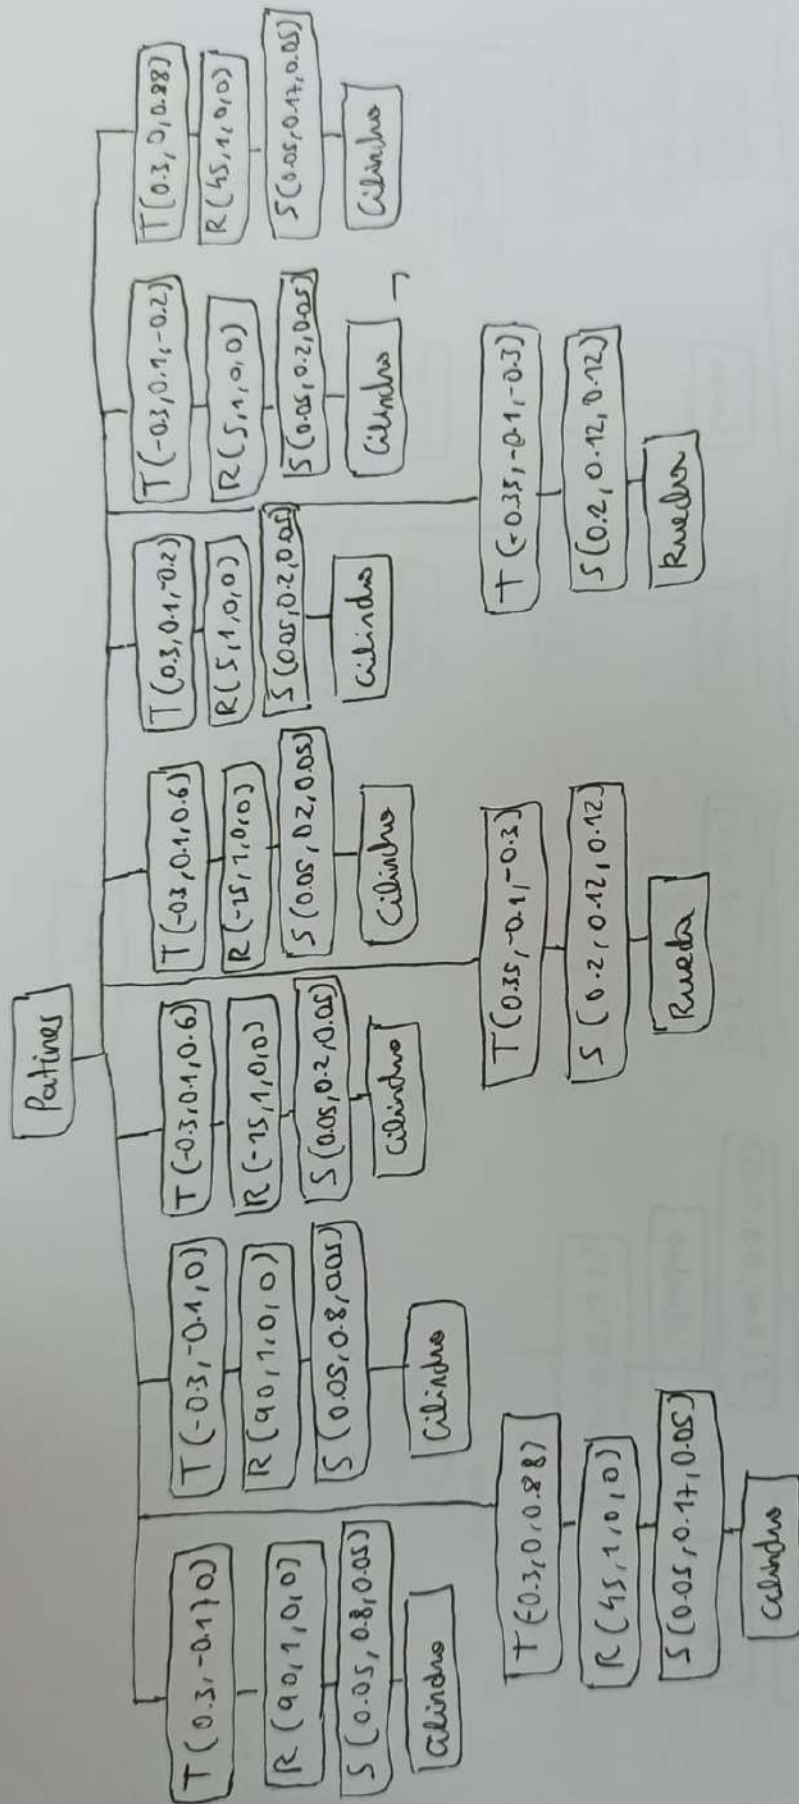 Patines
T(0.3,-0.1,0)
R(90,1,0,0)
S(0.05,0.8,0.05)
Cilindro
T(-0.3,-0.1,0)
R(90,1,0,0)
S(0.05,0.8,0.05)
Cilindro
T(-0.3,0.1,0.6)
R(-25,1,0,0)
S(0.05,0.2,0.05)
Cilindro
T(-0.3,0.1,0.6)
R(-25,1,0,0)
S(0.05,0.2,0.05)
Cilindro
T(0.3,0.1,-0.2)
R(5,1,0,0)
S(0.05,0.2,0.05)
Cilindro
T(-0.3,0.1,-0.2)
R(5,1,0,0)
S(0.05,0.2,0.05)
Cilindro
T(0.3,0,0.88)
R(45,1,0,0)
S(0.05,0.17,0.05)
Cilindro
T(-0.3,0,0.88)
R(45,1,0,0)
S(0.05,0.17,0.05)
Cilindro
T(0.35,-0.1,-0.3)
S(0.2,0.12,0.12)
Rueda
T(-0.35,-0.1,-0.3)
S(0.2,0.12,0.12)
Rueda